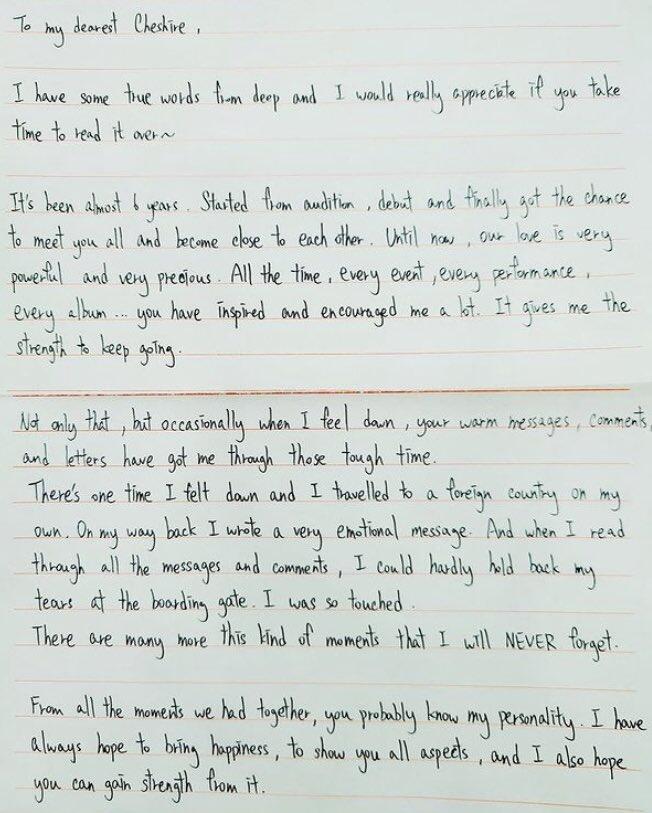 To my dearest Cheshire,
I have some true words from deep and I would really appreciate if you take
time to read it over~
It's been almost 6 years. Started from audition, debut and finally got the chance
to meet you all and become close to each other. Until now, our love is very
powerful and very precious. All the time, every event, every performance,
every album ... you have inspired and encouraged me a lot. It gives me the
strength to keep going.
Not only that, but occasionally when I feel down, your warm messages, comments,
and letters have got me through those tough time.
There's one time I felt down and I travelled to a foreign country on my
own. On my way back I wrote a very emotional message. And when I read
through all the messages and comments, I could hardly hold back my
tears at the boarding gate. I was so touched.
There are many more this kind of moments that I will NEVER forget.
From all the moments we had together, you probably know my personality. I have
always hope to bring happiness, to show you all aspects, and I also hope
you can gain strength from it.